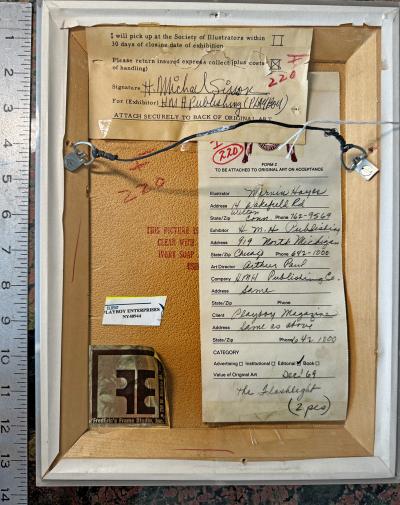 I will pick up at the Society of Illustrators within
30 days of closing date of exhibition
Please return insured express collect (plus costs
of handling)
220
Signature H. Michael Sisson
For (Exhibitor) HMH Publishing (PLAYBOY)
ATTACH SECURELY TO BACK OF ORIGINAL ART
I
220
FORM 2
TO BE ATTACHED TO ORIGINAL ART ON ACCEPTANCE
I
220
Illustrator Marvin Hayes
Address 14 Wakefield Rd
Wilton
State/Zip Conn. Phone 762-9569
Exhibitor H M H Publishing
Address 919 North Michigan
State/Zip Chicago Phone 642-1000
Art Director Arthur Paul
Company HMH Publishing Co.
Address Same
State/Zip Phone
Client Playboy Magazine
Address Same as above
State/Zip Phone 642 1000
CATEGORY
Advertising Institutional Editorial Book
Value of Original Art Dec. '69
The Flashlight
(2 pcs)
THIS PICTURE IS
CLEAN WITH
IVORY SOAP
PLAYBOY ENTERPRISES
NY-00544
FE
Frederic's Frame Studio, Inc.
1
2
3
4
5
6
7
8
9
10
11
12
13
14